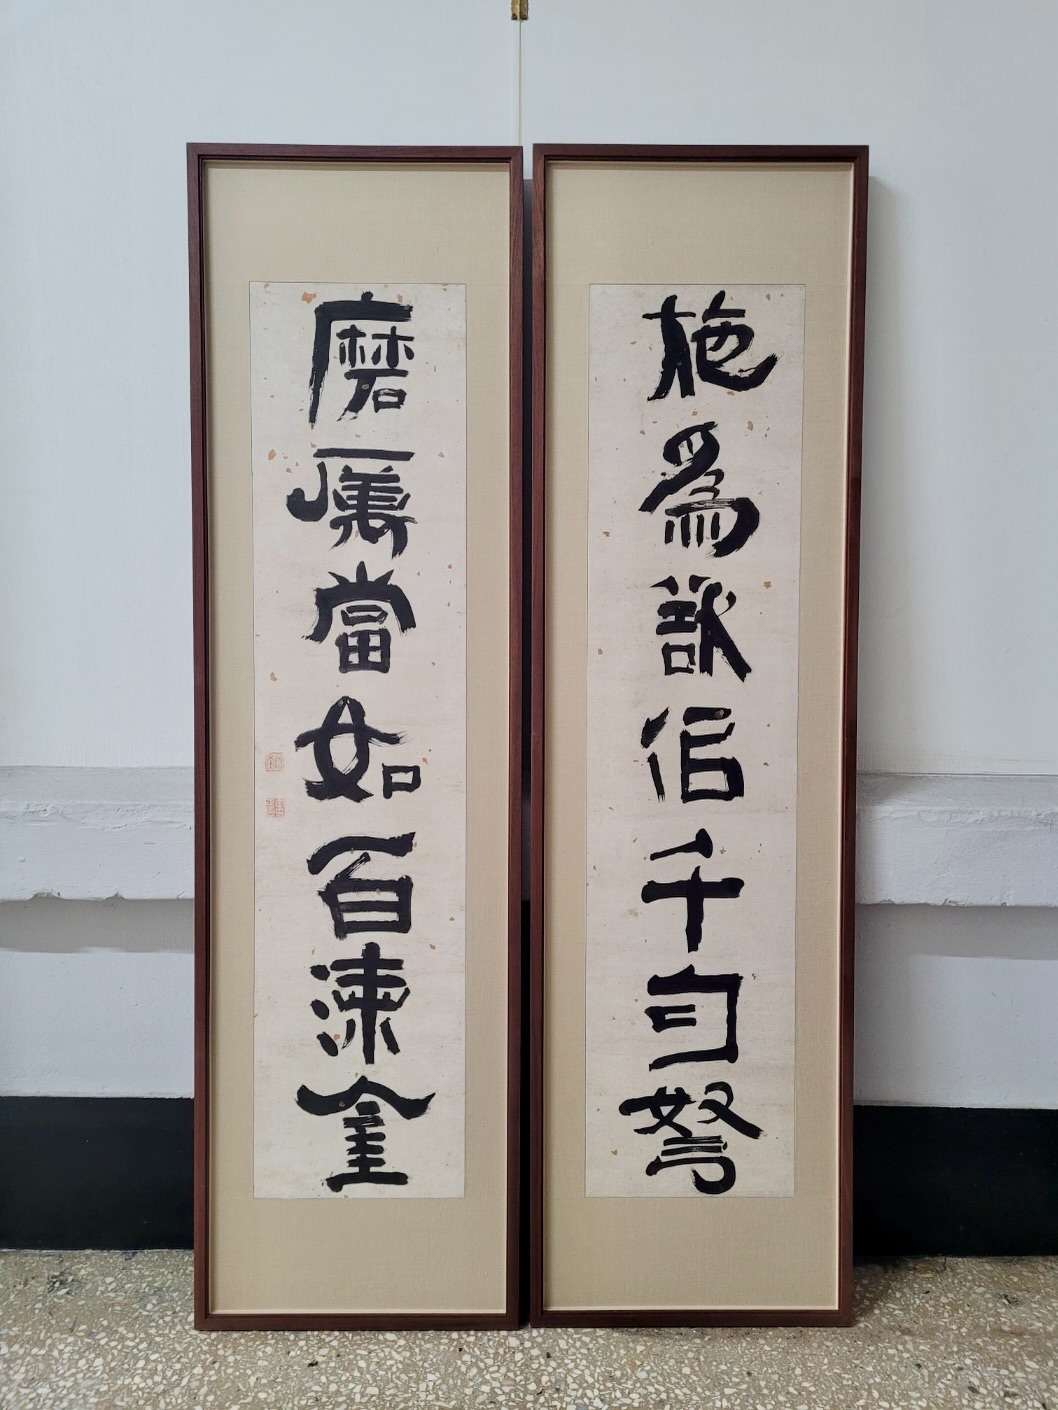 施為欲佀千勻弩
磨厲當如百湅金